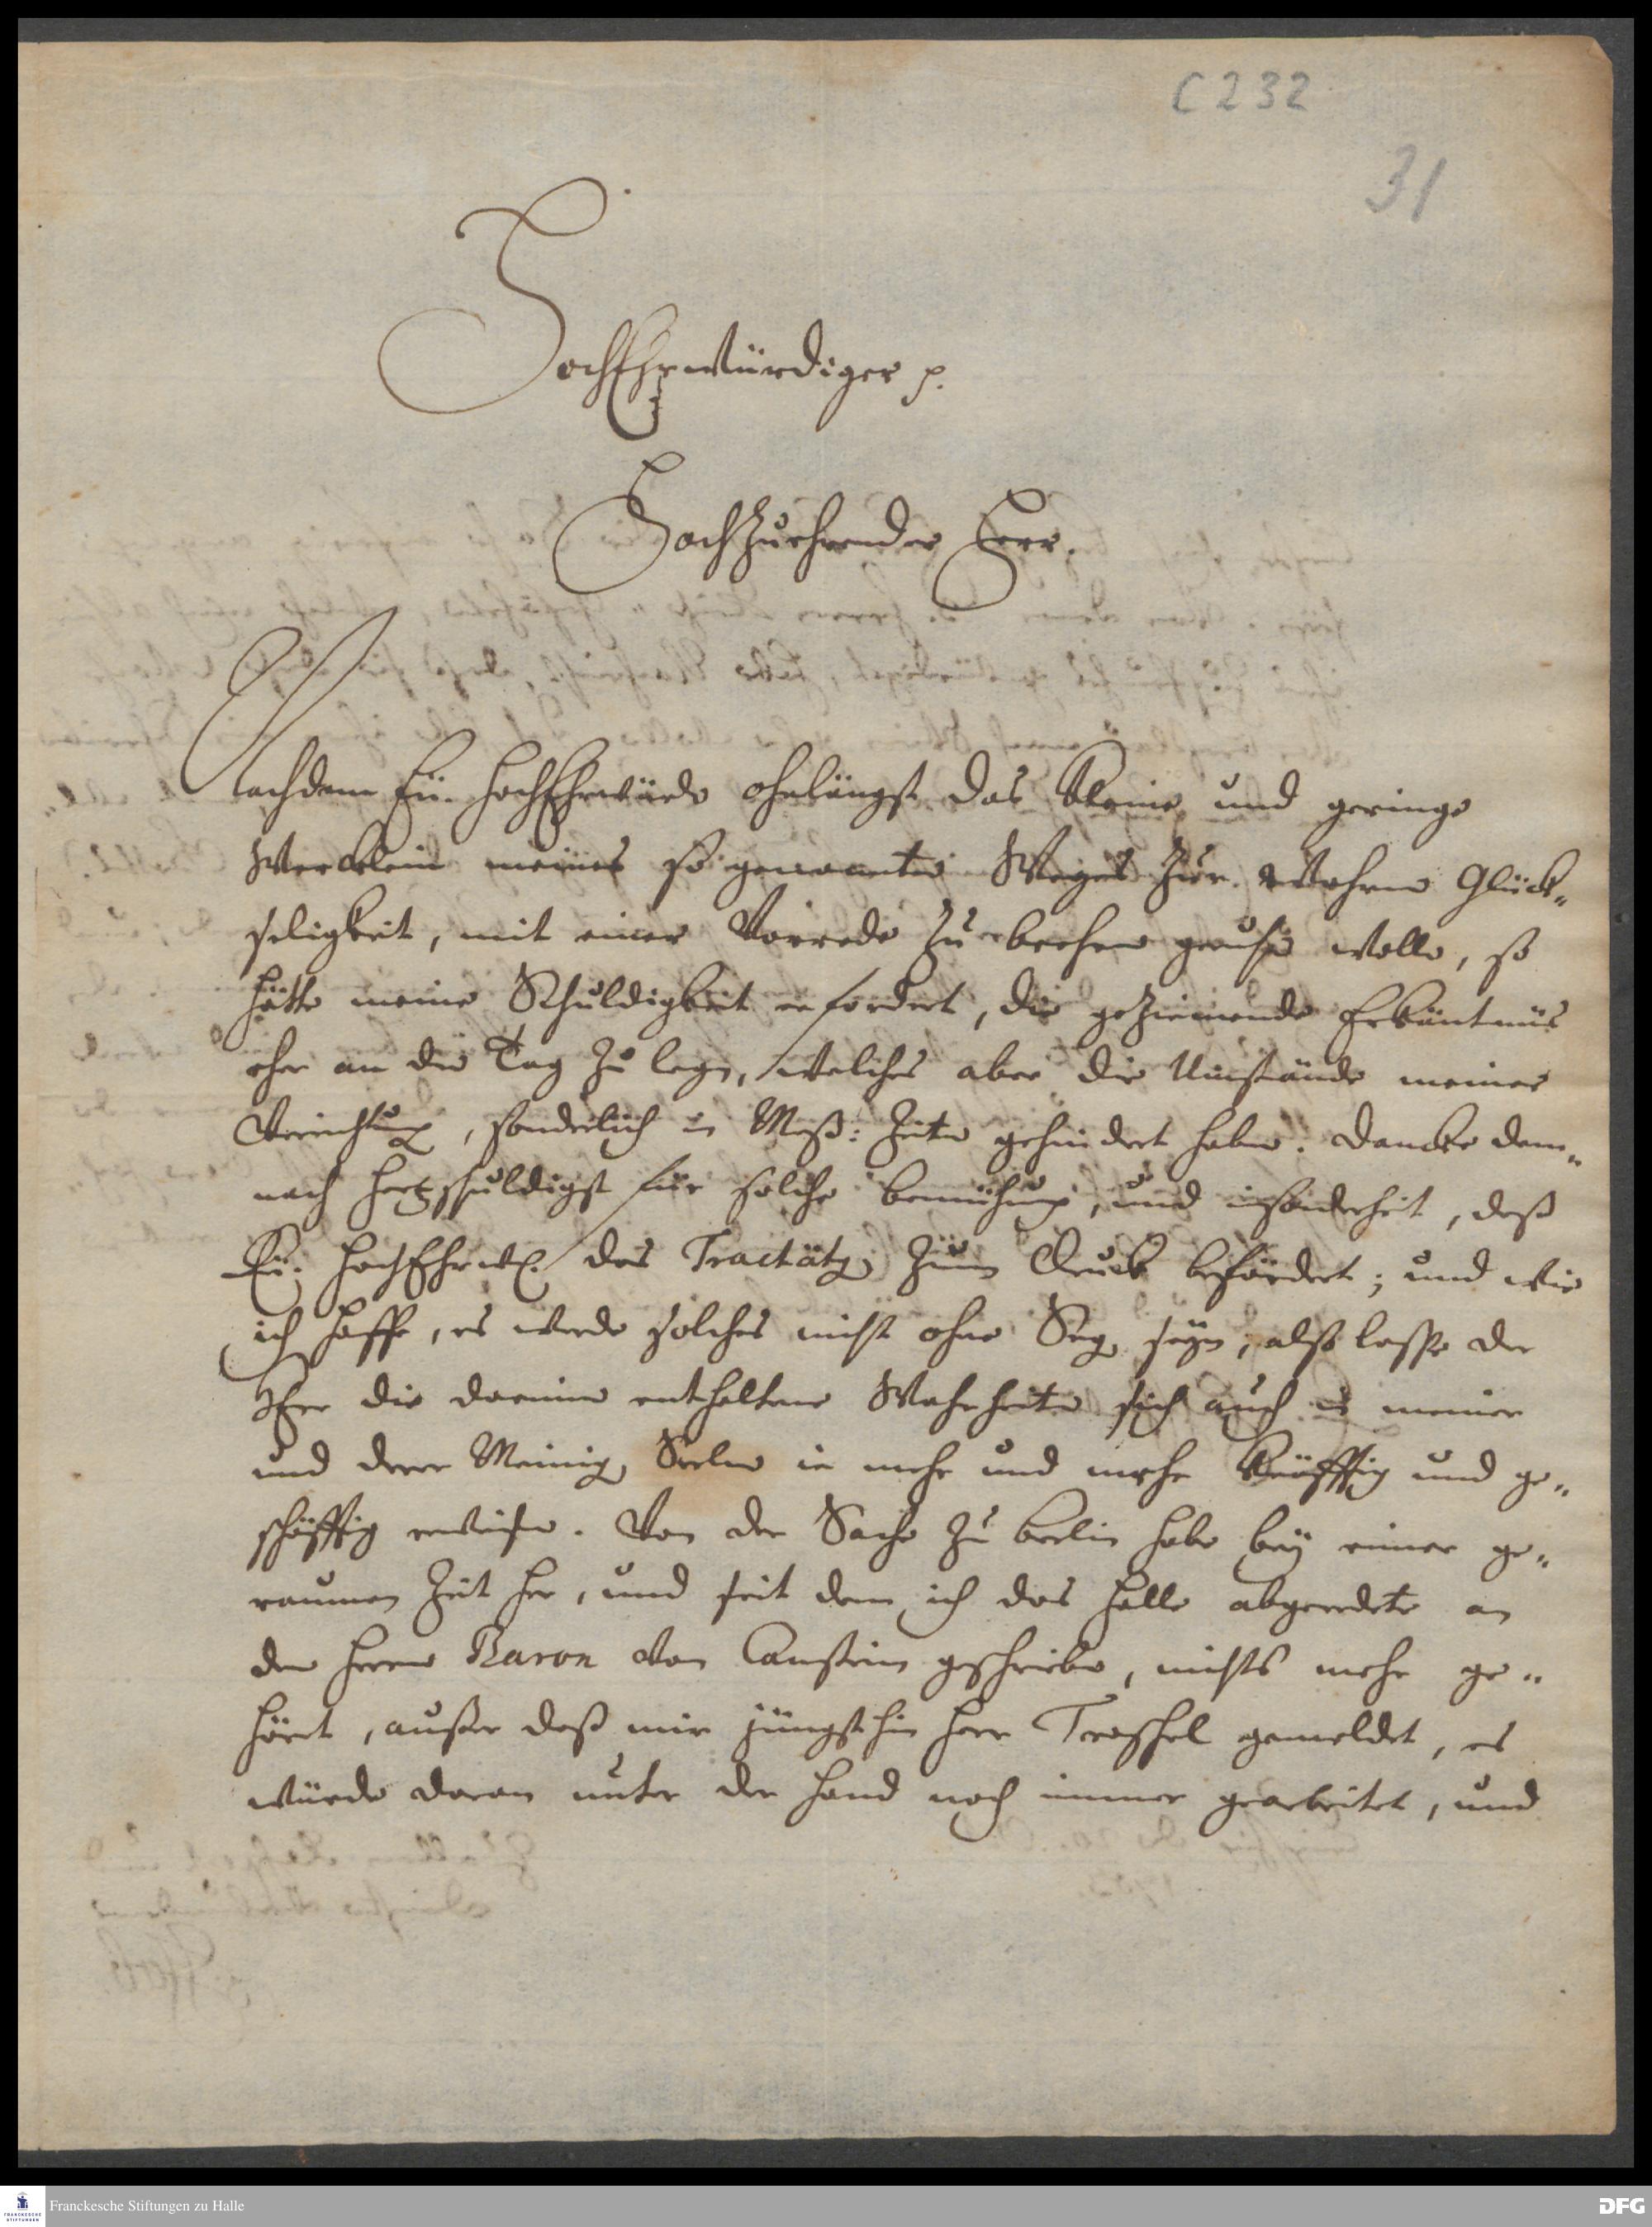 C 232
31
HochEhrwürdiger p.
HochZuehrender Herr.
Nachdem Eu. HochEhrwürde ohnlängst das kleine und geringe
Wercklein meines so genannten Weges zur Wahren Glück-
seligkeit, mit einer Vorrede zu beehren geruhen wolle, so
hätte meine Schuldigkeit erfordert, die geziemende Erkäntnüs
eher an den Tag zu legen, welches aber die Umstände meiner
Verrichtung, sonderlich in Meß: Zeiten gehindert haben. Dancke dem-
nach hertzschuldigst für solche bemühung, und insonderheit, daß
Eu. HochEhrw. das Tractätgen zum Druck befördert; und wie
ich hoffe, es werde solches nicht ohne Segen seyn, also lasse der
HErr die darinne enthaltene Wahrheiten sich auch in meiner
und derer Meinigen Seelen ie mehr und mehr kräfftig und ge-
schäfftig erweisen. Von der Sache zu Berlin habe bey einer ge-
raumen Zeit her, und seit dem ich das Halle abgeredete an
den Herrn Baron von Canstein geschrieben, nichts mehr ge-
hört, außer daß mir jüngsthin Herr Troschel gemeldet, es
würde daran unter der Hand noch immer gearbeitet, und
Franckesche Stiftungen zu Halle
DFG